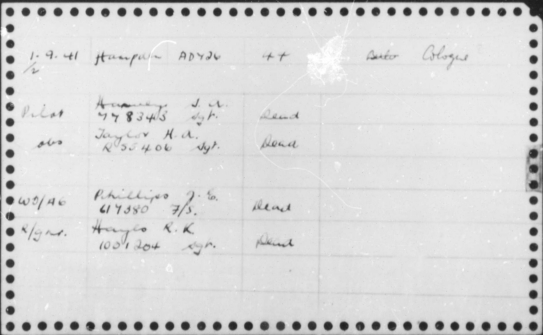 1-9-41 Hampden AD726 44 Cologne
/2
Pilot
778345 Sgt. Dead
obs Taylor H.A.
R55406 Sgt. Dead
WO/AG Phillips J.E.
617380 F/S. Dead
R/gnr. R.K
1051204 Sgt. Dead